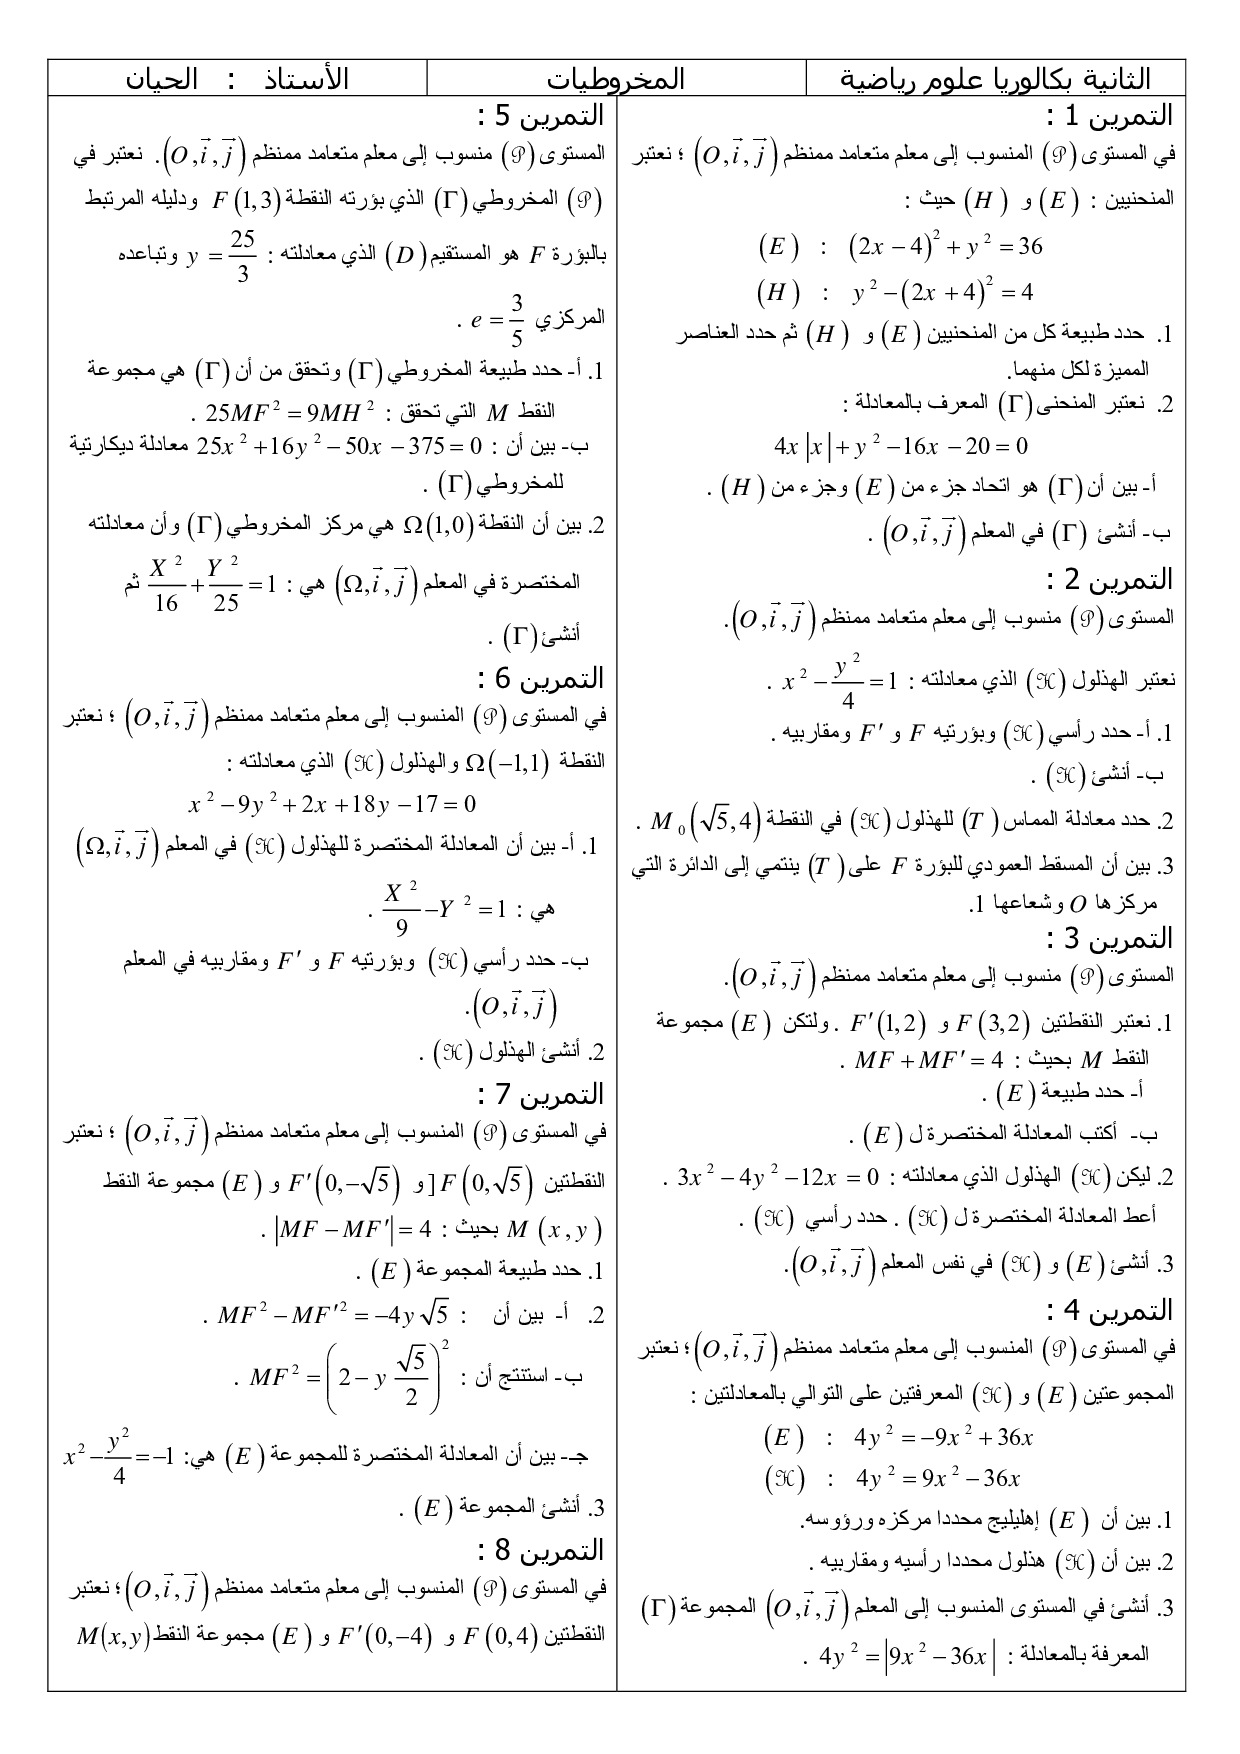 الثانية بكالوريا علوم رياضية
المخروطيات
الأستاذ : الحيان
التمرين 1 :
في المستوى (𝒫) المنسوب إلى معلم متعامد ممنظم (O, i⃗, j⃗) ؛ نعتبر
المنحنيين : (E) و (H) حيث :
(E) : (2x − 4)² + y² = 36
(H) : y² − (2x + 4)² = 4
1. حدد طبيعة كل من المنحنيين (E) و (H) ثم حدد العناصر
المميزة لكل منهما.
2. نعتبر المنحنى (Γ) المعرف بالمعادلة :
4x|x| + y² − 16x − 20 = 0
أ- بين أن (Γ) هو اتحاد جزء من (E) وجزء من (H) .
ب- أنشئ (Γ) في المعلم (O, i⃗, j⃗) .
التمرين 2 :
المستوى (𝒫) منسوب إلى معلم متعامد ممنظم (O, i⃗, j⃗).
نعتبر الهذلول (ℋ) الذي معادلته : x² − y²/4 = 1 .
1. أ- حدد رأسي (ℋ) وبؤرتيه F و F′ ومقاربيه .
ب- أنشئ (ℋ) .
2. حدد معادلة المماس (T) للهذلول (ℋ) في النقطة M₀(√5, 4) .
3. بين أن المسقط العمودي للبؤرة F على (T) ينتمي إلى الدائرة التي
مركزها O وشعاعها 1.
التمرين 3 :
المستوى (𝒫) منسوب إلى معلم متعامد ممنظم (O, i⃗, j⃗).
1. نعتبر النقطتين F(3,2) و F′(1,2) . ولتكن (E) مجموعة
النقط M بحيث : MF + MF′ = 4 .
أ- حدد طبيعة (E) .
ب- أكتب المعادلة المختصرة ل (E) .
2. ليكن (ℋ) الهذلول الذي معادلته : 3x² − 4y² − 12x = 0 .
أعط المعادلة المختصرة ل (ℋ) . حدد رأسي (ℋ) .
3. أنشئ (E) و (ℋ) في نفس المعلم (O, i⃗, j⃗).
التمرين 4 :
في المستوى (𝒫) المنسوب إلى معلم متعامد ممنظم (O, i⃗, j⃗)؛ نعتبر
المجموعتين (E) و (ℋ) المعرفتين على التوالي بالمعادلتين :
(E) : 4y² = −9x² + 36x
(ℋ) : 4y² = 9x² − 36x
1. بين أن (E) إهليليج محددا مركزه ورؤوسه.
2. بين أن (ℋ) هذلول محددا رأسيه ومقاربيه .
3. أنشئ في المستوى المنسوب إلى المعلم (O, i⃗, j⃗) المجموعة (Γ)
المعرفة بالمعادلة : 4y² = |9x² − 36x| .
التمرين 5 :
المستوى (𝒫) منسوب إلى معلم متعامد ممنظم (O, i⃗, j⃗). نعتبر في
(𝒫) المخروطي (Γ) الذي بؤرته النقطة F(1,3) ودليله المرتبط
بالبؤرة F هو المستقيم (D) الذي معادلته : y = 25/3 وتباعده
المركزي e = 3/5 .
1. أ- حدد طبيعة المخروطي (Γ) وتحقق من أن (Γ) هي مجموعة
النقط M التي تحقق : 25MF² = 9MH² .
ب- بين أن : 25x² + 16y² − 50x − 375 = 0 معادلة ديكارتية
للمخروطي (Γ) .
2. بين أن النقطة Ω(1,0) هي مركز المخروطي (Γ) وأن معادلته
المختصرة في المعلم (Ω, i⃗, j⃗) هي : X²/16 + Y²/25 = 1 ثم
أنشئ (Γ) .
التمرين 6 :
في المستوى (𝒫) المنسوب إلى معلم متعامد ممنظم (O, i⃗, j⃗) ؛ نعتبر
النقطة Ω(−1,1) والهذلول (ℋ) الذي معادلته :
x² − 9y² + 2x + 18y − 17 = 0
1. أ- بين أن المعادلة المختصرة للهذلول (ℋ) في المعلم (Ω, i⃗, j⃗)
هي : X²/9 − Y² = 1 .
ب- حدد رأسي (ℋ) وبؤرتيه F و F′ ومقاربيه في المعلم
(O, i⃗, j⃗).
2. أنشئ الهذلول (ℋ) .
التمرين 7 :
في المستوى (𝒫) المنسوب إلى معلم متعامد ممنظم (O, i⃗, j⃗) ؛ نعتبر
النقطتين F(0, √5) [ و F′(0, −√5) و (E) مجموعة النقط
M(x, y) بحيث : |MF − MF′| = 4 .
1. حدد طبيعة المجموعة (E) .
2. أ- بين أن : MF² − MF′² = −4y√5 .
ب- استنتج أن : MF² = (2 − y √5/2)² .
جـ- بين أن المعادلة المختصرة للمجموعة (E) هي: x² − y²/4 = −1
3. أنشئ المجموعة (E) .
التمرين 8 :
في المستوى (𝒫) المنسوب إلى معلم متعامد ممنظم (O, i⃗, j⃗)؛ نعتبر
النقطتين F(0,4) و F′(0,−4) و (E) مجموعة النقط M(x, y)